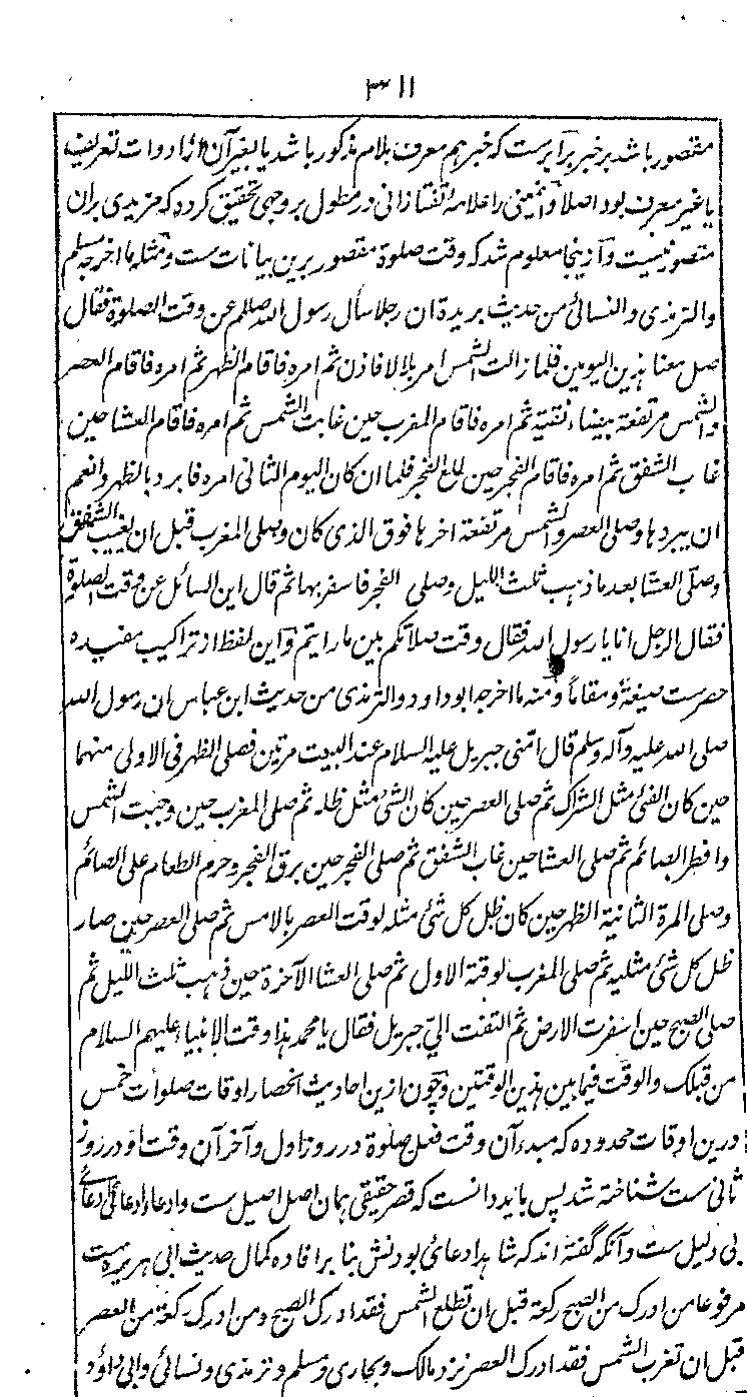 ۳۱۱
مقصور باشد بر خبر برابرست که خبر هم معرف بلام مذکور باشد یا بغیر آن از ادوات تعریف
یا غیر معرف بود اصلا و اینمعنی را علامه تفتازانی در مطول بر وجهی تحقیق کرده که مزیدی بران
متصور نیست و ازینجا معلوم شد که وقت صلوة مقصور برین بیانات ست و مثله ما اخرجه مسلم
والترمذی والنسائی من حدیث بریدة ان رجلا سأل رسول الله صللم عن وقت الصلوة فقال
صل معنا هذین الیومین فلما زالت الشمس امر بلالا فاذن ثم امره فاقام الظهر ثم امره فاقام العصر
والشمس مرتفعة بیضاء نقیة ثم امره فاقام المغرب حین غابت الشمس ثم امره فاقام العشا حین
غاب الشفق ثم امره فاقام الفجر حین طلع الفجر فلما ان کان الیوم الثانی امره فابرد بالظهر وانعم
ان یبرد بها وصلی العصر والشمس مرتفعة اخرها فوق الذی کان وصلی المغرب قبل ان یغیب الشفق
وصلی العشا بعد ما ذهب ثلث اللیل وصلی الفجر فاسفر بها ثم قال این السائل عن وقت الصلوة
فقال الرجل انا یا رسول الله فقال وقت صلاتکم بین ما رایتم و این لفظ از تراکیب مفیده
حصرست صیغة و مقاماً و منه ما اخرجه ابو داود والترمذی من حدیث ابن عباس ان رسول الله
صلی الله علیه وآله وسلم قال امنی جبریل علیه السلام عند البیت مرتین فصلی الظهر فی الاولی منهما
حین کان الفئ مثل الشراک ثم صلی العصر حین کان الشئ مثل ظله ثم صلی المغرب حین وجبت الشمس
وافطر الصائم ثم صلی العشا حین غاب الشفق ثم صلی الفجر حین برق الفجر وحرم الطعام علی الصائم
وصلی المرة الثانیة الظهر حین کان ظل کل شئ مثله لوقت العصر بالامس ثم صلی العصر حین صار
ظل کل شئ مثلیه ثم صلی المغرب لوقته الاول ثم صلی العشا الآخرة حین ذهب ثلث اللیل ثم
صلی الصبح حین اسفرت الارض ثم التفت الیّ جبریل فقال یا محمد هذا وقت الانبیاء علیهم السلام
من قبلک والوقت فیما بین هذین الوقتین و چون ازین احادیث انحصار اوقات صلوات خمس
درین اوقات محدوده که مبدء آن وقت فعل صلوة در روز اول و آخر آن وقت او در روز
ثانی ست شناخته شد پس باید دانست که قصر حقیقی همان اصل اصیل ست و ادعاء ادعائی ادعائے
بی دلیل ست و آنکه گفته اند که شاهد ادعائی بودنش بنابر افاده کمال حدیث ابی هریره ست
مرفوعا من ادرک من الصبح رکعة قبل ان تطلع الشمس فقد ادرک الصبح ومن ادرک رکعة من العصر
قبل ان تغرب الشمس فقد ادرک العصر نزد مالک و بخاری و مسلم و ترمذی و نسائی و ابی داؤد